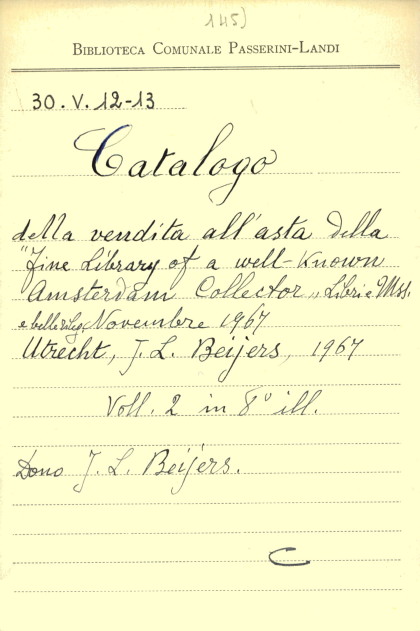 145)
BIBLIOTECA COMUNALE PASSERINI-LANDI
30. V. 12-13
Catalogo
della vendita all'asta della
"Fine Library of a well-known
Amsterdam Collector„ Libri e Mss.
e belle Leg. Novembre 1967
Utrecht, J. L. Beijers, 1967
Voll. 2 in 8° ill.
Dono J. L. Beijers.
C